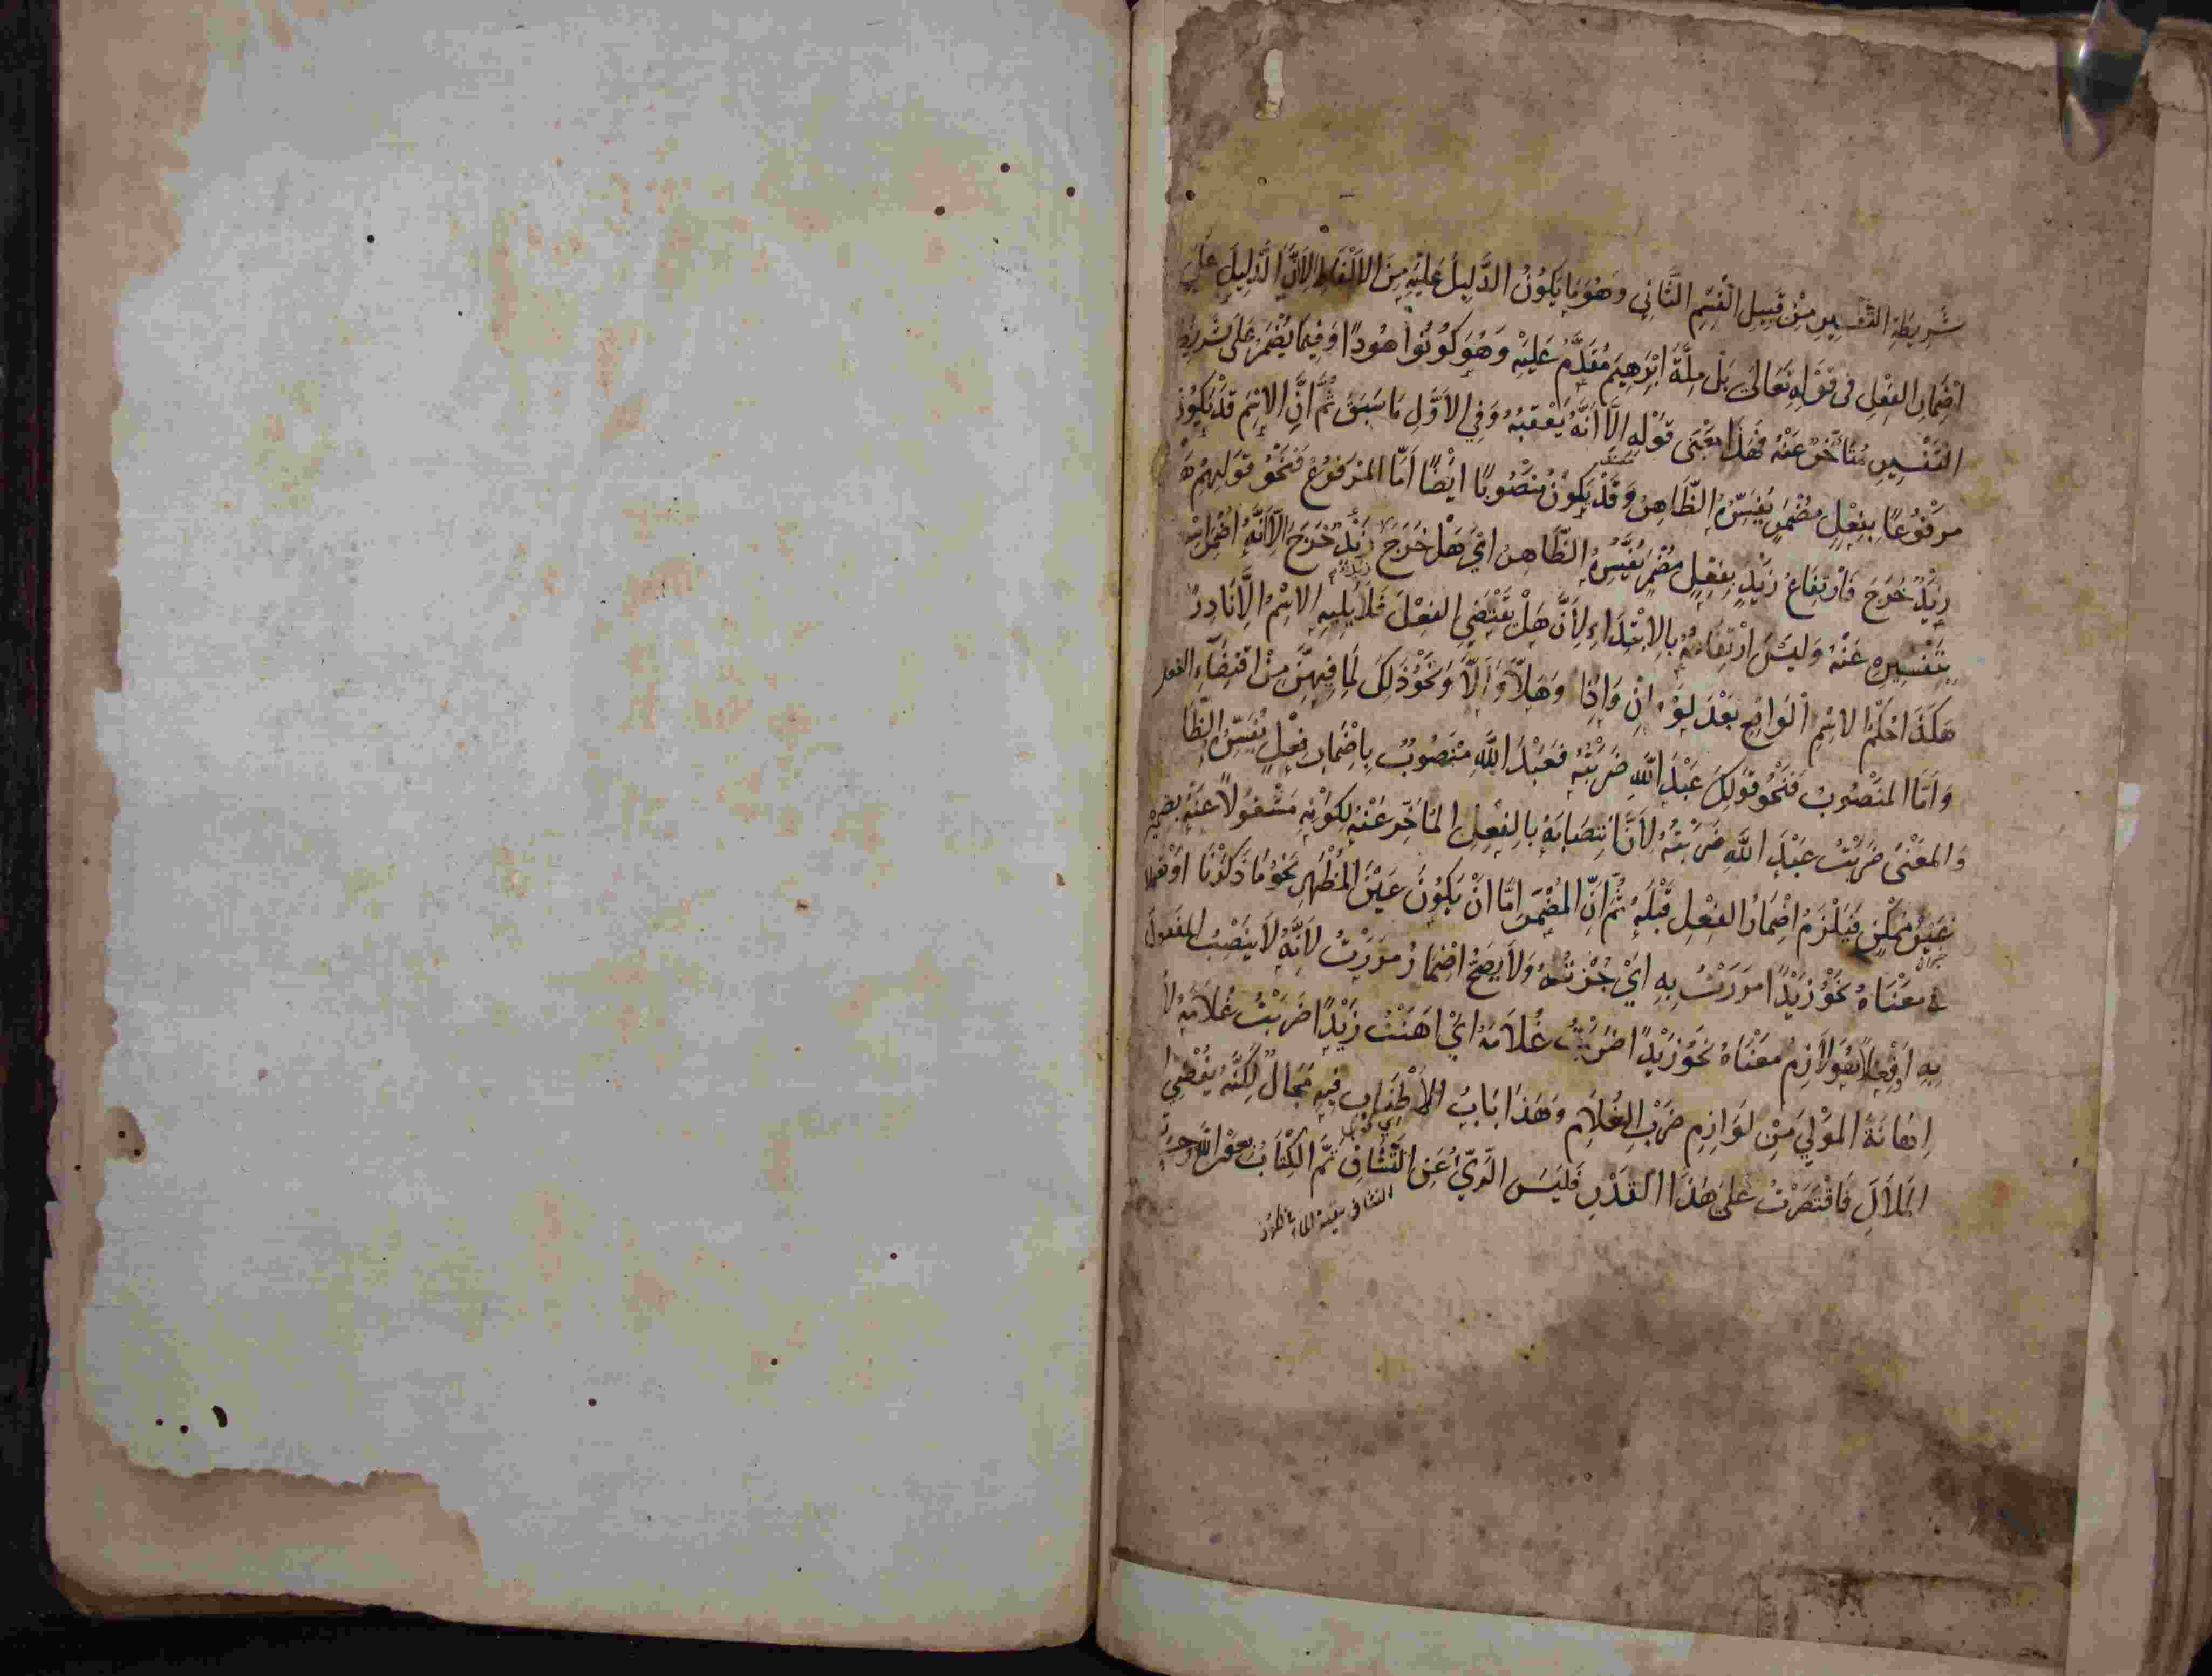 شَرِيطَةِ التَّفْسِيرِ مِنْ قَبِيلِ الْقِسْمِ الثَّانِي وَهُوَ مَا يَكُونُ الدَّلِيلُ عَلَيْهِ مِنَ الْأَلْفَاظِ لِأَنَّ الدَّلِيلَ عَلَى
اضْمَارِ الفِعْلِ فى قَوْلِهِ تَعَالَى بَلْ مِلَّةَ ابْرَهِيمَ مُقَدَّمٌ عَلَيْهِ وَهُوَ كُونُوا هُودًا وَفِيمَا يُضْمَرُ عَلَى شَرِيطَةِ
التَّفْسِيرِ مُتَأَخِّرٌ عَنْهُ فَهَذَا مَعْنَى قَوْلِهِ الَّا انَّهُ يَعْقبُهُ وَفِي الاَوَّلِ مَا سَبَقَ ثُمَّ انَّ الاِسْمَ قَدْ يَكُونُ
مَرْفُوعًا بِفِعْلٍ مُضْمَرٍ يُفَسِّرُهُ الظَّاهِرُ وَقَدْ يَكُونُ مَنْصُوبًا ايْضًا اَمَّا المَرْفُوعُ فَنَحْوُ قَوْلِهِمْ هَلْ
زَيْدٌ خَرَجَ فَارْتِفَاعُ زَيْدٍ بِفِعْلٍ مُضْمَرٍ يُفَسِّرُهُ الظَّاهِرُ ايْ هَلْ خَرَجَ زَيْدٌ خَرَجَ الَّا انَّهُ اضْمِرَ
بِتَفْسِيرِهِ عَنْهُ وَلَيْسَ ارْتِفَاعُهُ بِالاِبْتِدَاءِ لِاَنَّ هَلْ يَقْتَضِي الفِعْلَ فَلَا يَلِيهِ الاِسْمُ الَّا نَادِرًا
هَكَذَا حُكْمُ الاِسْمِ الْوَاقِعِ بَعْدَ لَوْ وَ انْ وَ اذَا وَهَلَّا وَ الَّا وَنَحْوُ ذَلِكَ لِمَا فِيهِنَّ مِنْ اقْتِضَاءِ الفعل
وَاَمَّا المَنْصُوبُ فَنَحْوُ قَوْلِكَ عَبْدَ اللَّهِ ضَرَبْتُهُ فَعَبْدَ اللَّهِ مَنْصُوبٌ بِاضْمَارِ فِعْلٍ يُفَسِّرُهُ الظَّا
وَالمَعْنَى ضَرَبْتُ عَبْدَ اللَّهِ ضَرَبْتُهُ لِاَنَّ انْتِصَابَهُ بِالفِعْلِ المتَأَخِّرِ عَنْهُ لِكَوْنِهِ مَشْغُولًا عَنْهُ بِضَمِيرِهِ
غَيْرُ مُمْكِنٍ فَيَلْزَمُ اضْمَارُ الفِعْلِ قَبْلَهُ ثُمَّ انَّ المُضْمَرَ امَّا انْ يَكُونَ عَيْنَ المُظْهَرِ نَحْوُ مَا ذَكَرْنَا اوْ فعلا
فى مَعْنَاهُ نَحْوُ زَيْدًا مَرَرْتُ بِهِ ايْ جُزْتُهُ وَلَا يَصِحُّ اضْمَارُ مَرَرْتُ لِاَنَّهُ لَا يَنْصِبُ المَفْعُولَ
بِهِ اوْ فِعْلًا هُوَ لَازِمُ مَعْنَاهُ نَحْوُ زَيْدًا ضَرَبْتُ غُلَامَهُ ايْ اهَنْتُ زَيْدًا ضَرَبْتُ غُلَامَهُ لِاَنَّ
اهَانَةَ المَوْلَى مِنْ لَوَازِمِ ضَرْبِ الغُلَامِ وَهَذَا بَابٌ لِلاطْنَابِ فِيهِ مَجَالٌ لَكِنَّهُ يُفْضِي الى
المَلَالِ فَاقْتَصَرْتُ عَلَى هَذَا القَدْرِ فَلَيْسَ الرِّيُّ عَنِ التَّشَافِّ تَمَّ الكِتَابُ بِعَوْنِ اللَّهِ وَحده